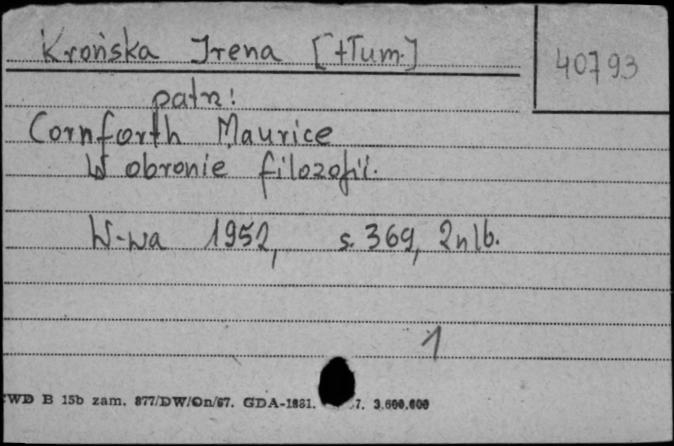 Krońska Irena [+Tum.]
40793
patrz:
Cornforth Maurice
W obronie filozofii.
W-wa 1952, s. 369, 2nlb.
1
WD B 15b zam. 877/DW/On/67. GDA-1881. 7. 3.600.000